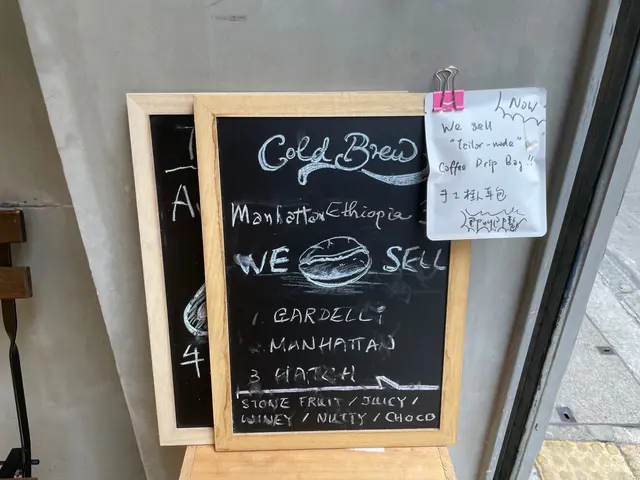 Cold Brew
Manhattan Ethiopia
WE SELL
1. GARDELLi
2. MANHATTAN
3. HATCH
STONE FRUIT / JUICY /
WINEY / NUTTY / CHOCO
Now
We sell
"Teilor-made"
Coffee Drip Bag!!
手工掛耳包
4